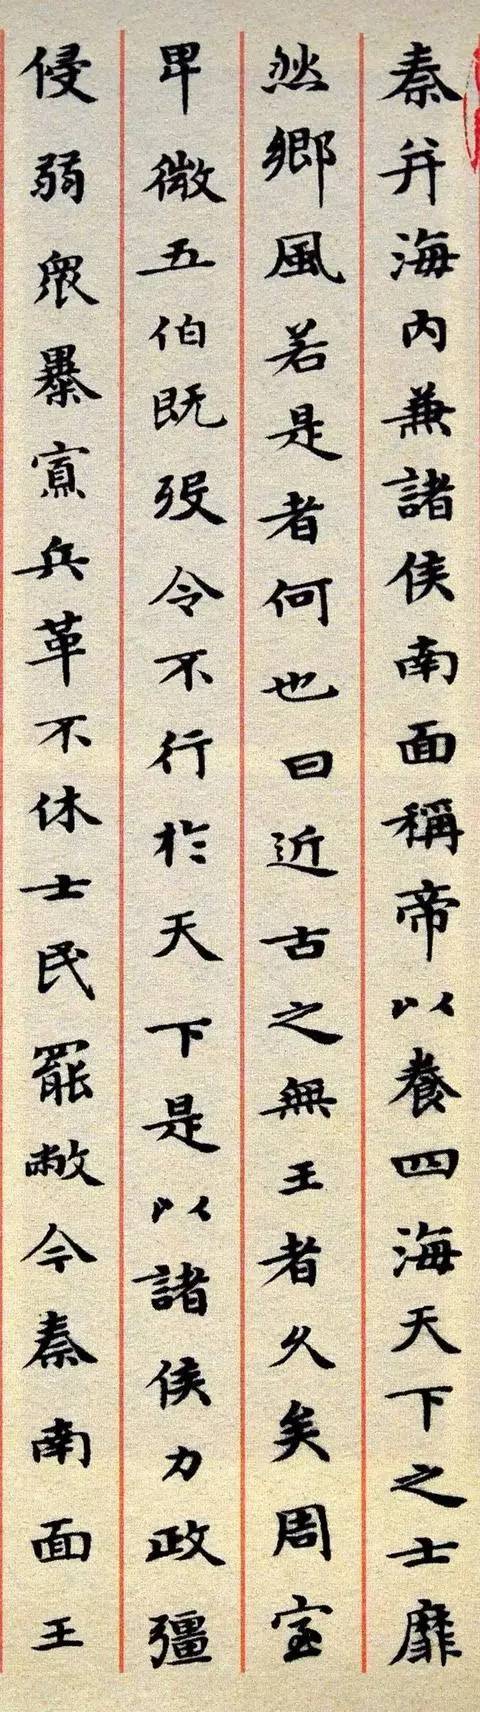 秦并海內兼諸侯南面稱帝以養四海天下之士靡
然鄉風若是者何也曰近古之無王者久矣周室
卑微五伯既歿令不行於天下是以諸侯力政彊
侵弱眾暴寡兵革不休士民罷敝今秦南面王